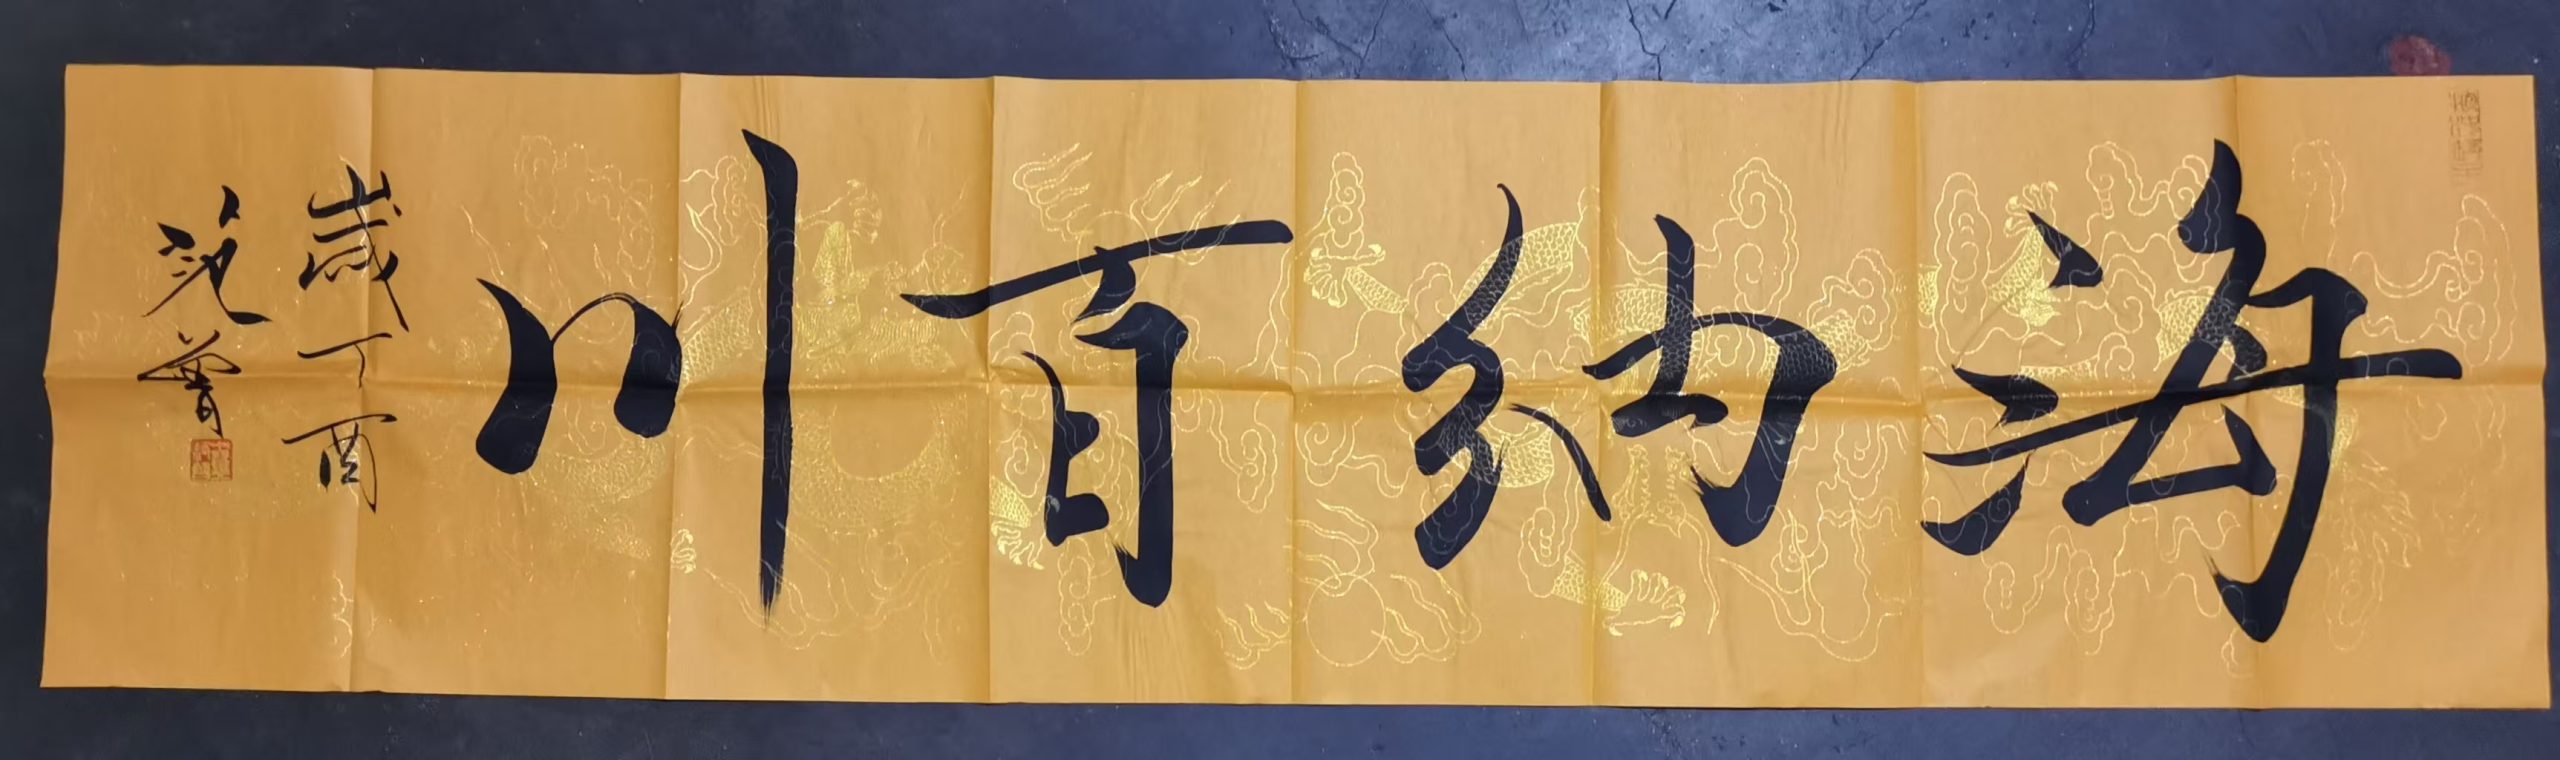 海纳百川
歲丁酉
范曾